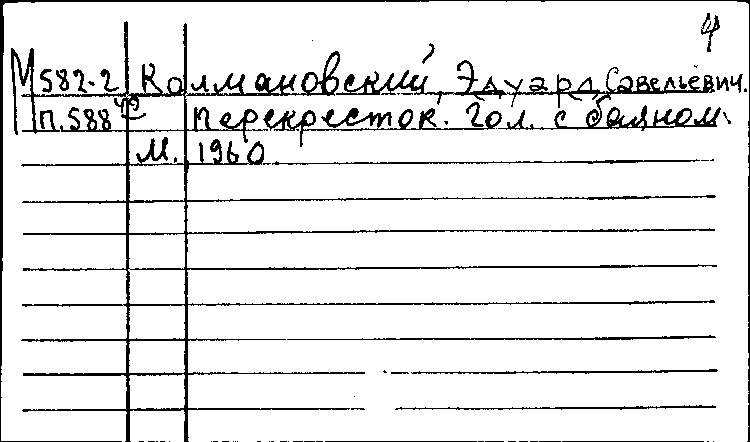 4
М582-2 Колмановский, Эдуард Савельевич.
П.588 Перекресток. Гол. с баяном.
М. 1960.